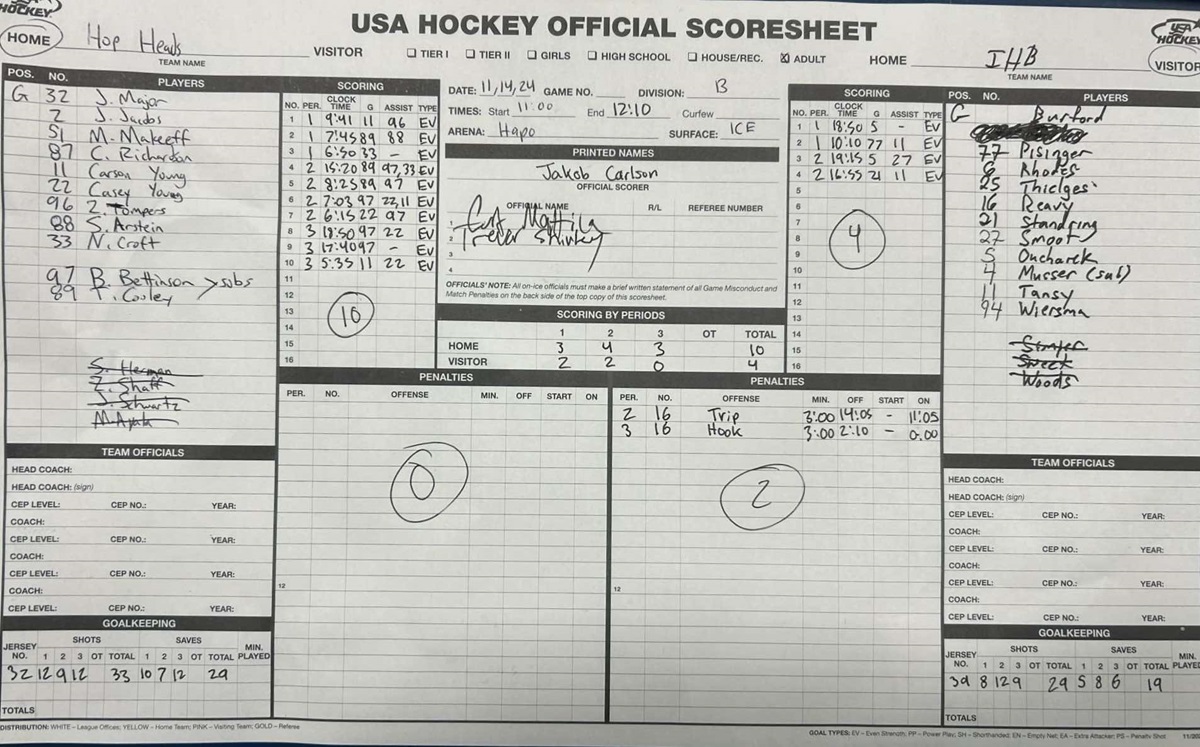 HOCKEY
USA HOCKEY OFFICIAL SCORESHEET
USA HOCKEY
HOME Hop Heads VISITOR
TEAM NAME
☐ TIER I ☐ TIER II ☐ GIRLS ☐ HIGH SCHOOL ☐ HOUSE/REC. ☒ ADULT
HOME IHB VISITOR
TEAM NAME
POS. NO. PLAYERS
G 32 J. Major
2 J. Jacobs
51 M. Makeeff
87 C. Richardson
11 Carson Young
22 Casey Young
96 Z. Tompers
88 S. Arstein
33 N. Croft
97 B. Bettinson > subs
89 T. Cooley
S. Herman
Z. Shaff
J. Schwartz
M Ayala
TEAM OFFICIALS
HEAD COACH:
HEAD COACH: (sign)
CEP LEVEL: CEP NO.: YEAR:
COACH:
CEP LEVEL: CEP NO.: YEAR:
COACH:
CEP LEVEL: CEP NO.: YEAR:
COACH:
CEP LEVEL: CEP NO.: YEAR:
GOALKEEPING
SHOTS SAVES
JERSEY NO. 1 2 3 OT TOTAL 1 2 3 OT TOTAL MIN. PLAYED
32 12 9 12 33 10 7 12 29
TOTALS
SCORING
NO. PER. CLOCK TIME G ASSIST TYPE
1 1 9:41 11 96 EV
2 1 7:45 89 88 EV
3 1 6:50 33 - EV
4 2 15:20 89 97,33 EV
5 2 8:25 89 97 EV
6 2 7:03 97 22,11 EV
7 2 6:15 22 97 EV
8 3 18:50 97 22 EV
9 3 17:40 97 - EV
10 3 5:35 11 22 EV
11
12
13
14
15
16
10
DATE: 11,14,24 GAME NO. DIVISION: B
TIMES: Start 11:00 End 12:10 Curfew
ARENA: Hapo SURFACE: ICE
PRINTED NAMES
Jakob Carlson
OFFICIAL SCORER
OFFICIAL NAME R/L REFEREE NUMBER
1
2
3
4
OFFICIALS' NOTE: All on-ice officials must make a brief written statement of all Game Misconduct and
Match Penalties on the back side of the top copy of this scoresheet.
SCORING BY PERIODS
1 2 3 OT TOTAL
HOME 3 4 3 10
VISITOR 2 2 0 4
SCORING
NO. PER. CLOCK TIME G ASSIST TYPE
1 1 18:50 5 - EV
2 1 10:10 77 11 EV
3 2 19:15 5 27 EV
4 2 16:55 21 11 EV
5
6
7
8
9
10
11
12
13
14
15
16
4
PENALTIES
PER. NO. OFFENSE MIN. OFF START ON
0
12
PENALTIES
PER. NO. OFFENSE MIN. OFF START ON
2 16 Trip 3:00 14:05 - 11:05
3 16 Hook 3:00 2:10 - 0:00
2
12
POS. NO. PLAYERS
G Burford
77 Pisinger
6 Rhodes
25 Thielges
16 Reavy
21 Standring
27 Smoot
5 Oncharek
4 Musser (sub)
11 Tansy
94 Wiersma
Woods
TEAM OFFICIALS
HEAD COACH:
HEAD COACH: (sign)
CEP LEVEL: CEP NO.: YEAR:
COACH:
CEP LEVEL: CEP NO.: YEAR:
COACH:
CEP LEVEL: CEP NO.: YEAR:
COACH:
CEP LEVEL: CEP NO.: YEAR:
GOALKEEPING
SHOTS SAVES
JERSEY NO. 1 2 3 OT TOTAL 1 2 3 OT TOTAL MIN. PLAYE
39 8 12 9 29 5 8 6 19
TOTALS
DISTRIBUTION: WHITE – League Offices; YELLOW – Home Team; PINK – Visiting Team; GOLD – Referee
GOAL TYPES: EV – Even Strength; PP – Power Play; SH – Shorthanded; EN – Empty Net; EA – Extra Attacker; PS – Penalty Shot 11/20